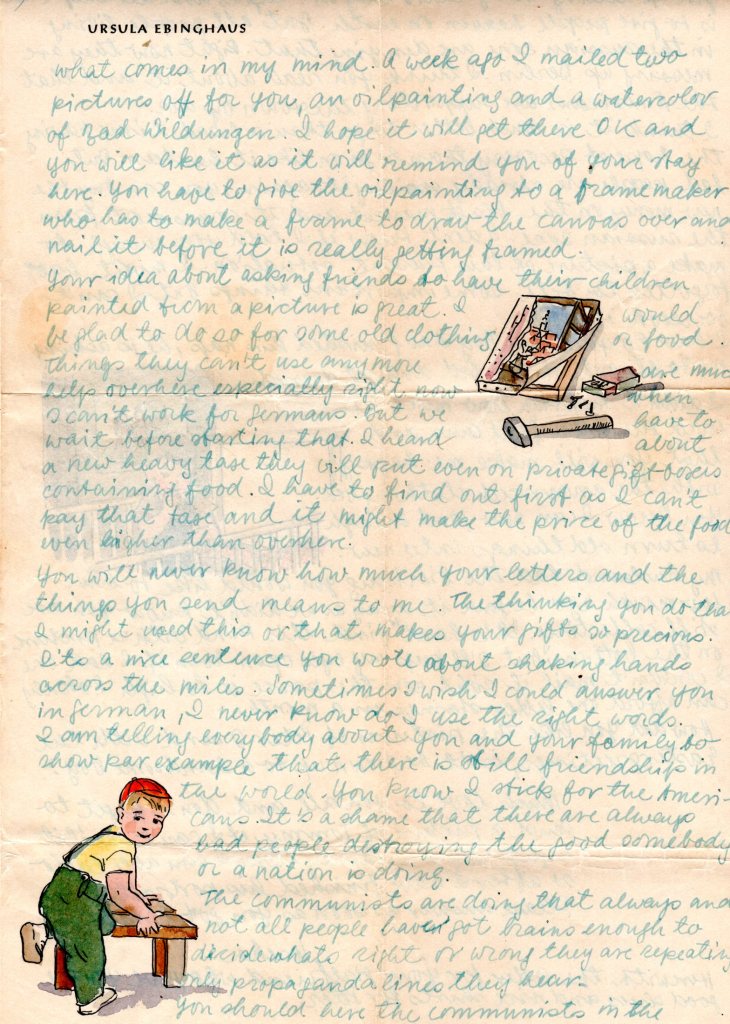 URSULA EBINGHAUS
what comes in my mind. A week ago I mailed two
pictures off for you, an oilpainting and a watercolor
of Bad Wildungen. I hope it will get there OK and
you will like it as it will remind you of your stay
here. You have to give the oilpainting to a framemaker
who has to make a frame to draw the canvas over and
nail it before it is really getting framed.
Your idea about asking friends to have their children
painted from a picture is great. I would
be glad to do so for some old clothing or food.
Things they can't use anymore are much
help overhere especially right now when
I can't work for germans. But we have to
wait before starting that. I heard about
a new heavy taxe they will put even on private gift boxes
containing food. I have to find out first as I can't
pay that taxe and it might make the price of the food
even higher than overhere.
You will never know how much your letters and the
things you send means to me. The thinking you do tha
I might used this or that makes your gifts so precious.
It's a nice sentence you wrote about shaking hands
across the miles. Sometimes I wish I could answer you
in german, I never know do I use the right words.
I am telling everybody about you and your family to
show par example that there is still friendship in
the world. You know I sticks for the Ameri-
cans. It's a shame that there are always
bad people destroying the good somebody
or a nation is doing.
The communists are doing that always and
not all people haven't got brains enough to
dicide whats right or wrong they are repeating
only propaganda lines they hear.
You should here the communists in the